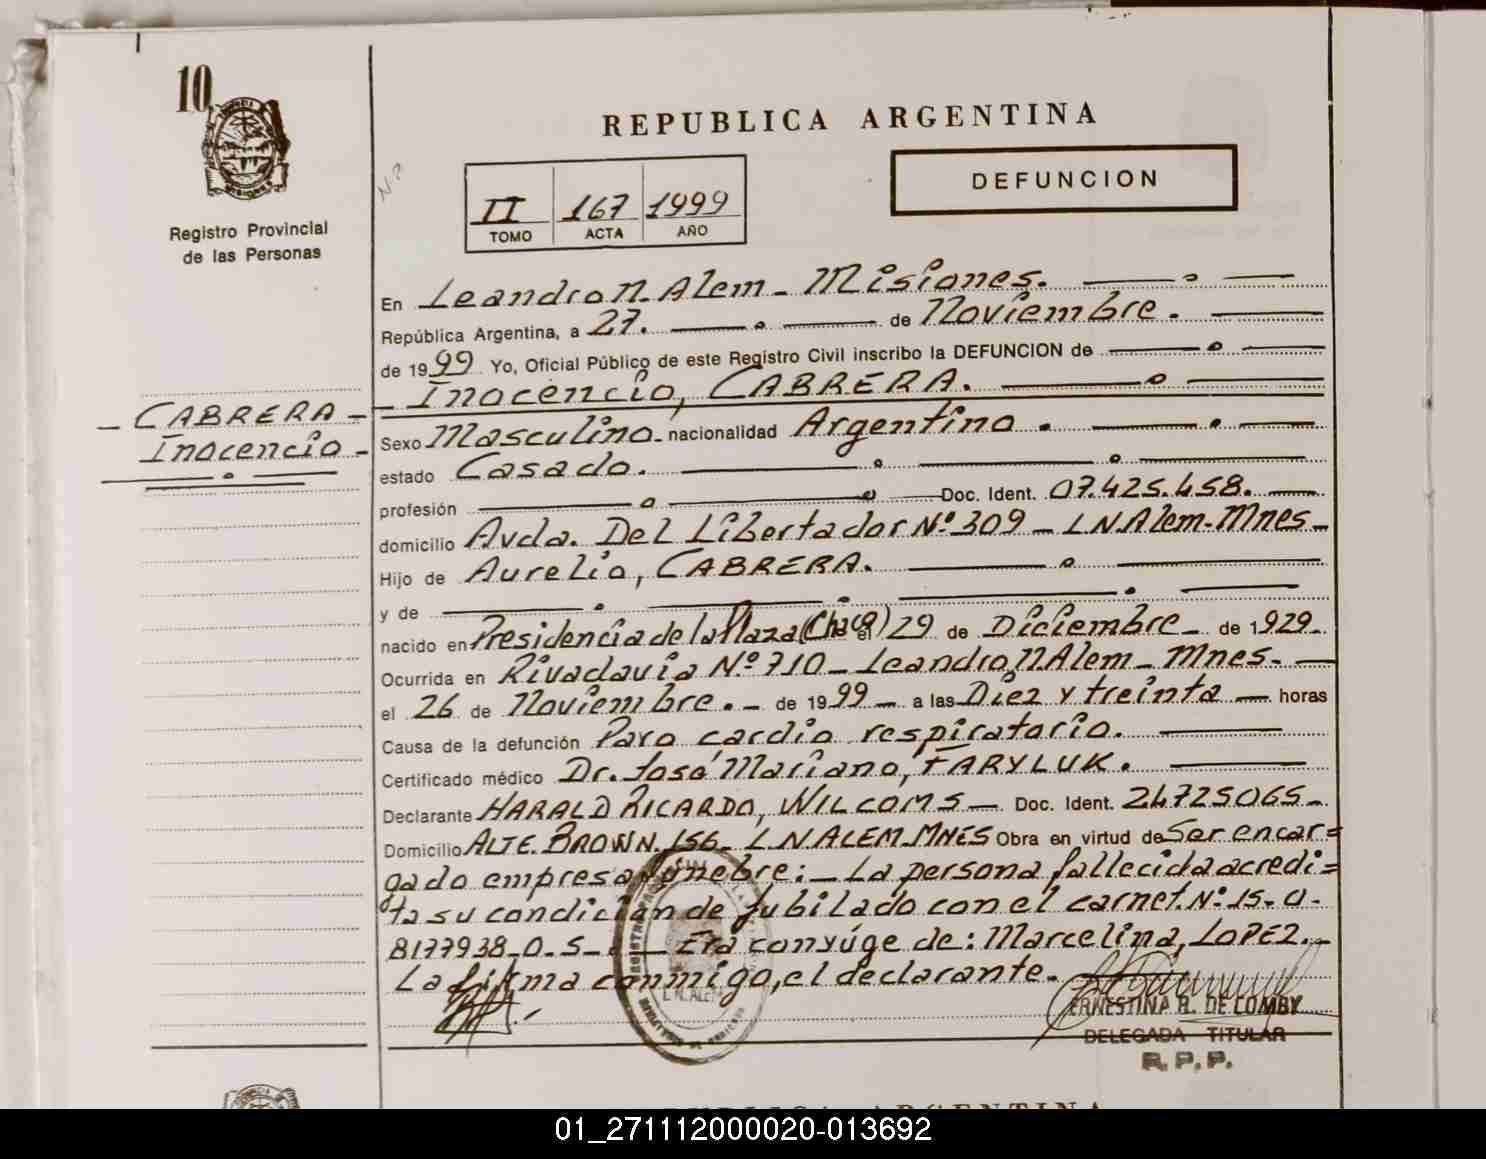 10
REPUBLICA ARGENTINA
DEFUNCION
II 167 1999
TOMO ACTA AÑO
Registro Provincial
de las Personas
CABRERA
Inocencio
En Leandro N. Alem - Misiones.
República Argentina, a 27. de Noviembre.
de 1999 Yo, Oficial Público de este Registro Civil inscribo la DEFUNCION de
Inocencio, CABRERA.
Sexo Masculino nacionalidad Argentino.
estado Casado.
profesión Doc. Ident. 07.425.458.
domicilio Avda. Del Libertador Nº 309 - L N. Alem - Mnes -
Hijo de Aurelio, CABRERA.
y de
nacido en Presidencia de la Plaza (Chaco) el 29 de Diciembre - de 1929.
Ocurrida en Rivadavia Nº 710 - Leandro N Alem - Mnes.
el 26 de Noviembre. - de 1999 - a las Diez y treinta horas
Causa de la defunción Paro cardio respiratorio.
Certificado médico Dr. José Mariano, FARYLUK.
Declarante HARALD RICARDO, WILCOMS Doc. Ident. 24725065 -
Domicilio ALTE. BROWN. 156 - L. N ALEM. MNES Obra en virtud de Ser encar=
gado empresa fúnebre: - La persona fallecida acredi=
ta su condición de Jubilado con el carnet. Nº 15-0-
8177938-0-5- Era conyúge de: Marcelina, LOPEZ. -
La firma conmigo, el declarante.
ERNESTINA R. DE COMBY
DELEGADA TITULAR
R.P.P.
01_271112000020-013692